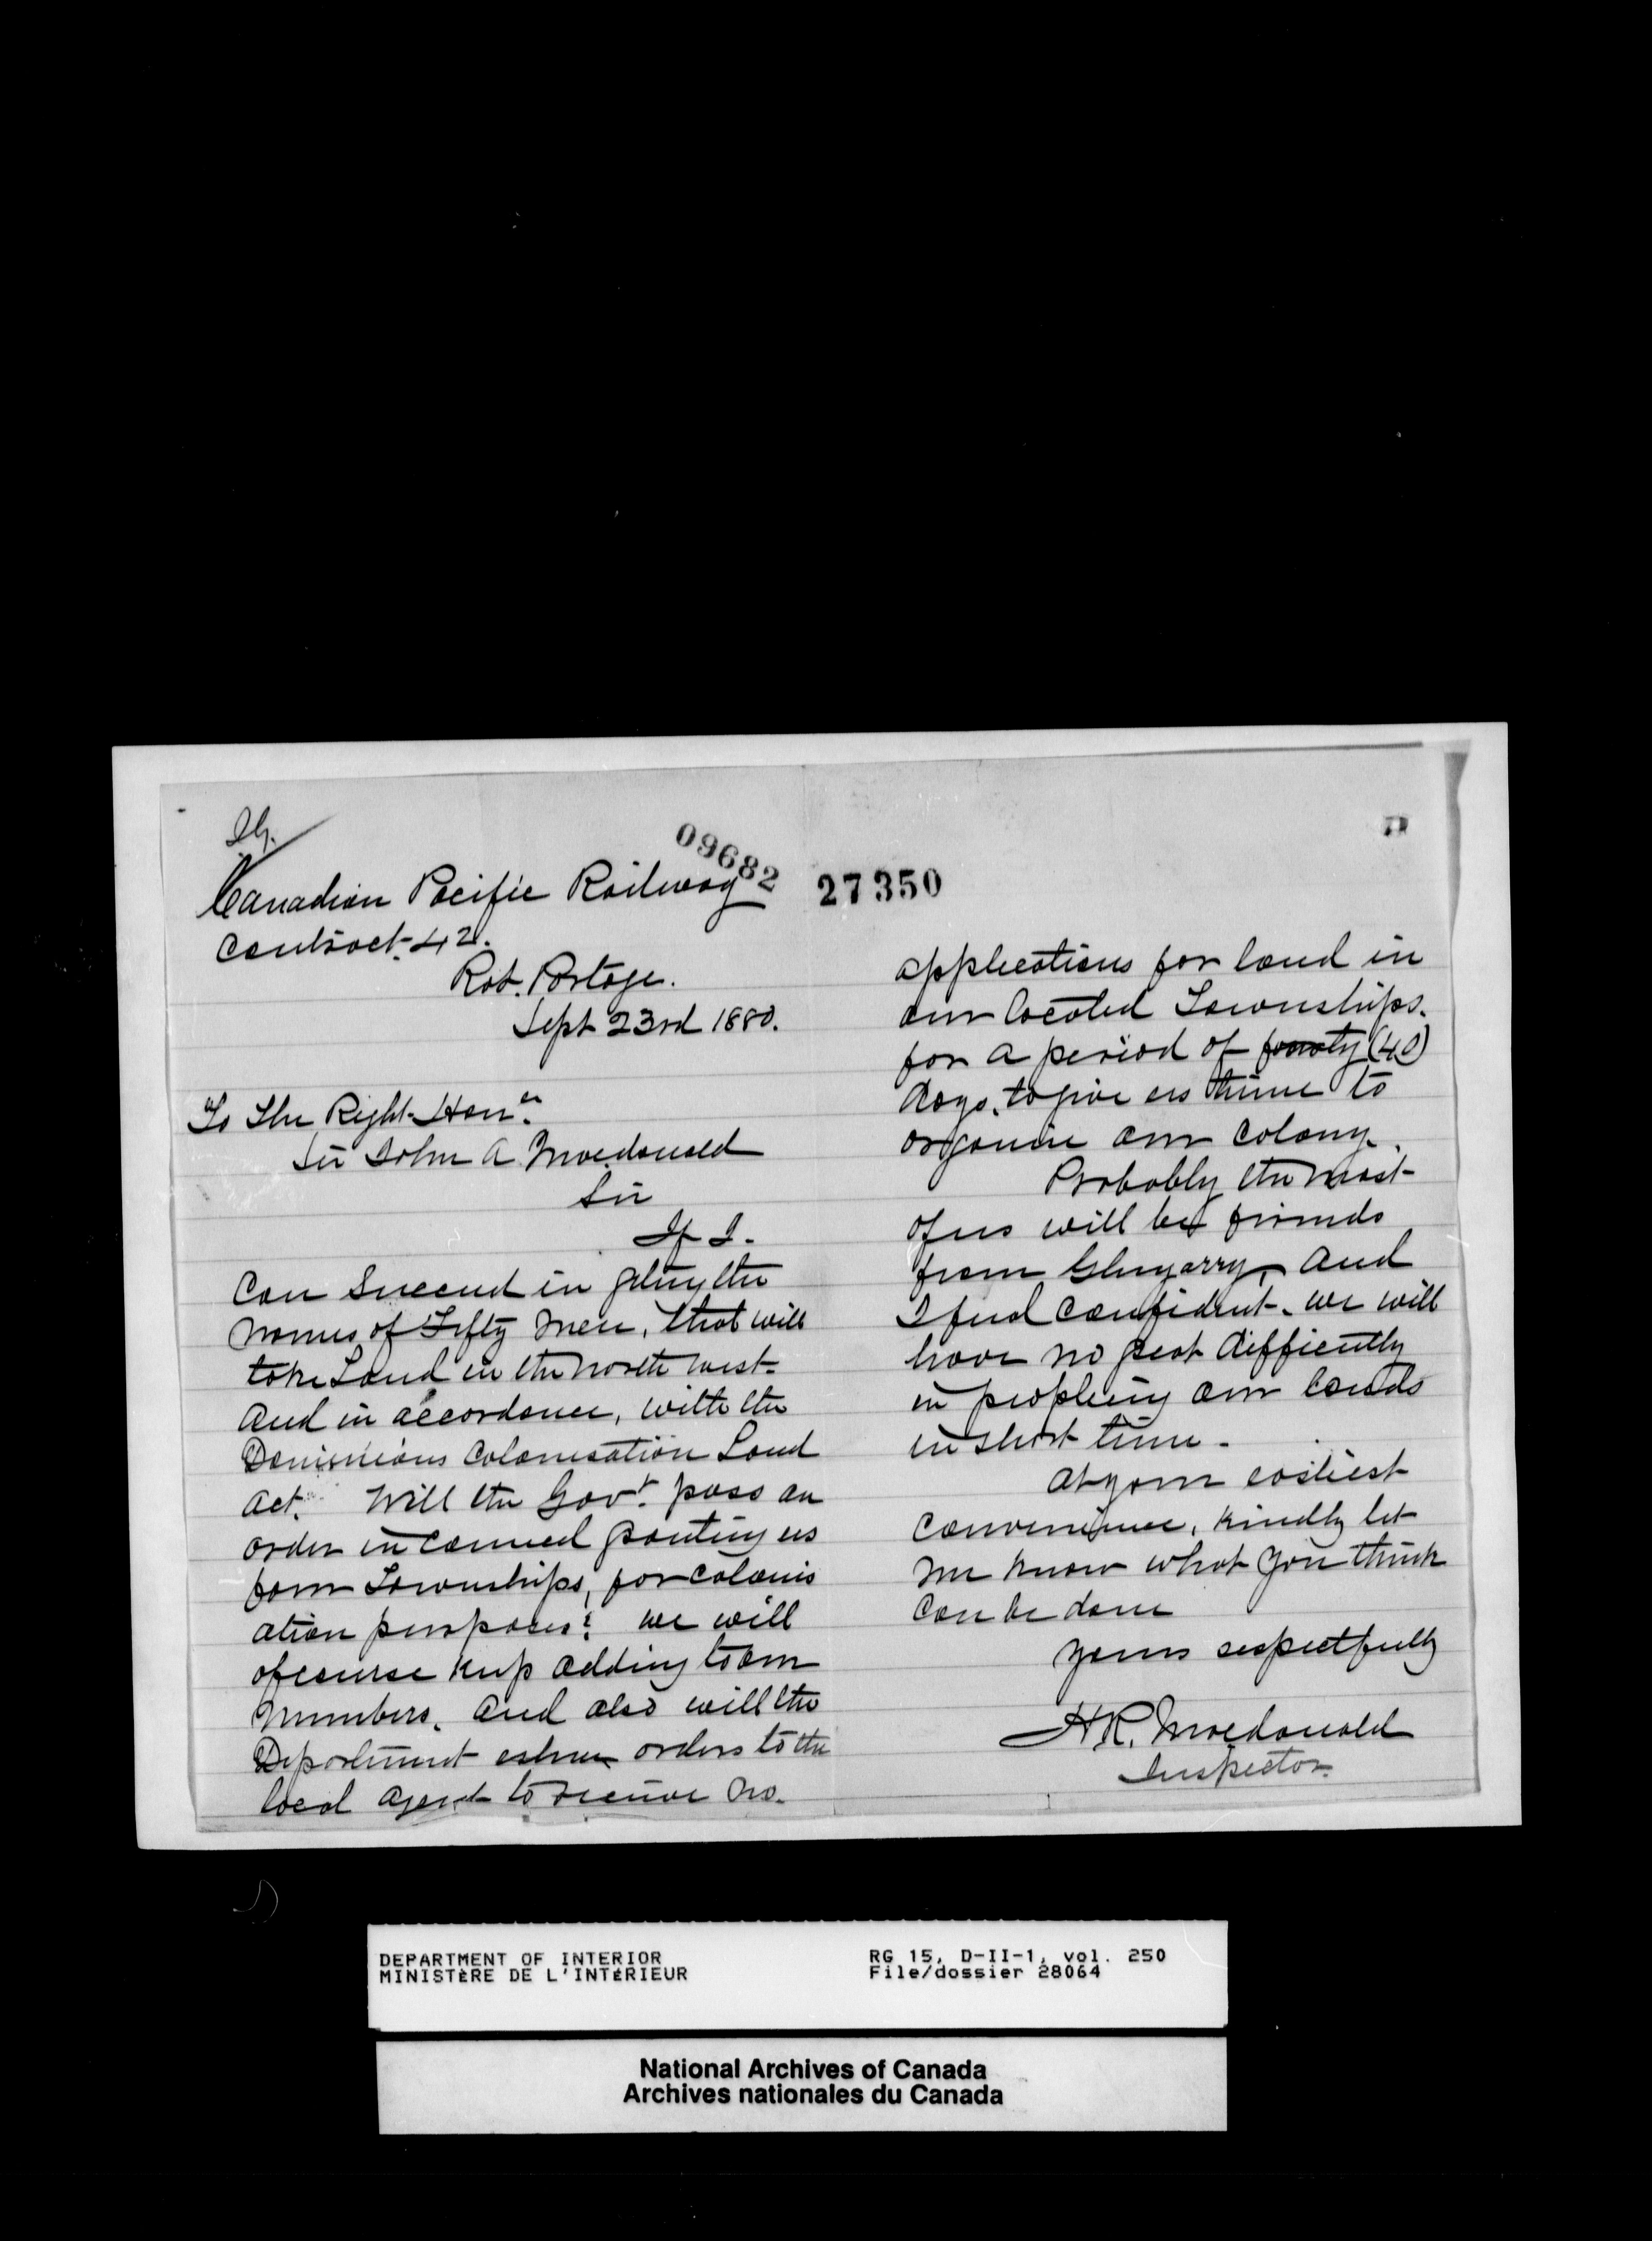 09682
27350
Canadian Pacific Railway
Contract. 42.
Rat. Portage.
Sept 23rd 1880.
To The Right Hon.
Sir John A Macdonald
Sir
If I.
Can Succeed in getting the
names of Fifty men, that will
take Land in the north west
and in accordance, with the
Dominions Colonisation Land
act. Will the Govt. pass an
order in Council granting us
four Townships, for colonis
ation purposes? we will
of course keep adding to our
numbers. and also will the
Department orders to the
local agent to receive no.
applications for land in
our located Townships.
for a period of fourty (40)
days. to give us time to
organise our colony.
Probably the most
of us will be friends
from Glengarry, and
I feel confident. we will
have no great difficulty
in peopleing our lands
in short time.
at your earliest
convenience, kindly let
me know what you think
can be done
yours respectfully
H R. Macdonald
Inspector.
DEPARTMENT OF INTERIOR
MINISTÈRE DE L'INTÉRIEUR
RG 15, D-II-1, vol. 250
File/dossier 28064
National Archives of Canada
Archives nationales du Canada